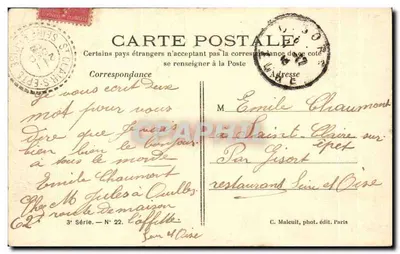 CARTE POSTALE
Certains pays étrangers n'acceptant pas la correspondance de ce côté
se renseigner à la Poste
Correspondance
Adresse
Je vous écrit deux
mot pour vous
dire que
bien le bonjour
à tous le monde
Emile Chaumont
Chez M Jules à
62 route de maison
Laffitte
Sein et Oise
M Emile Chaumont
a Sainte Claire sur
epet
Par Gisort
restaurant Seine et Oise
3e Série. - N° 22.
C. Maleuil, phot. édit. Paris